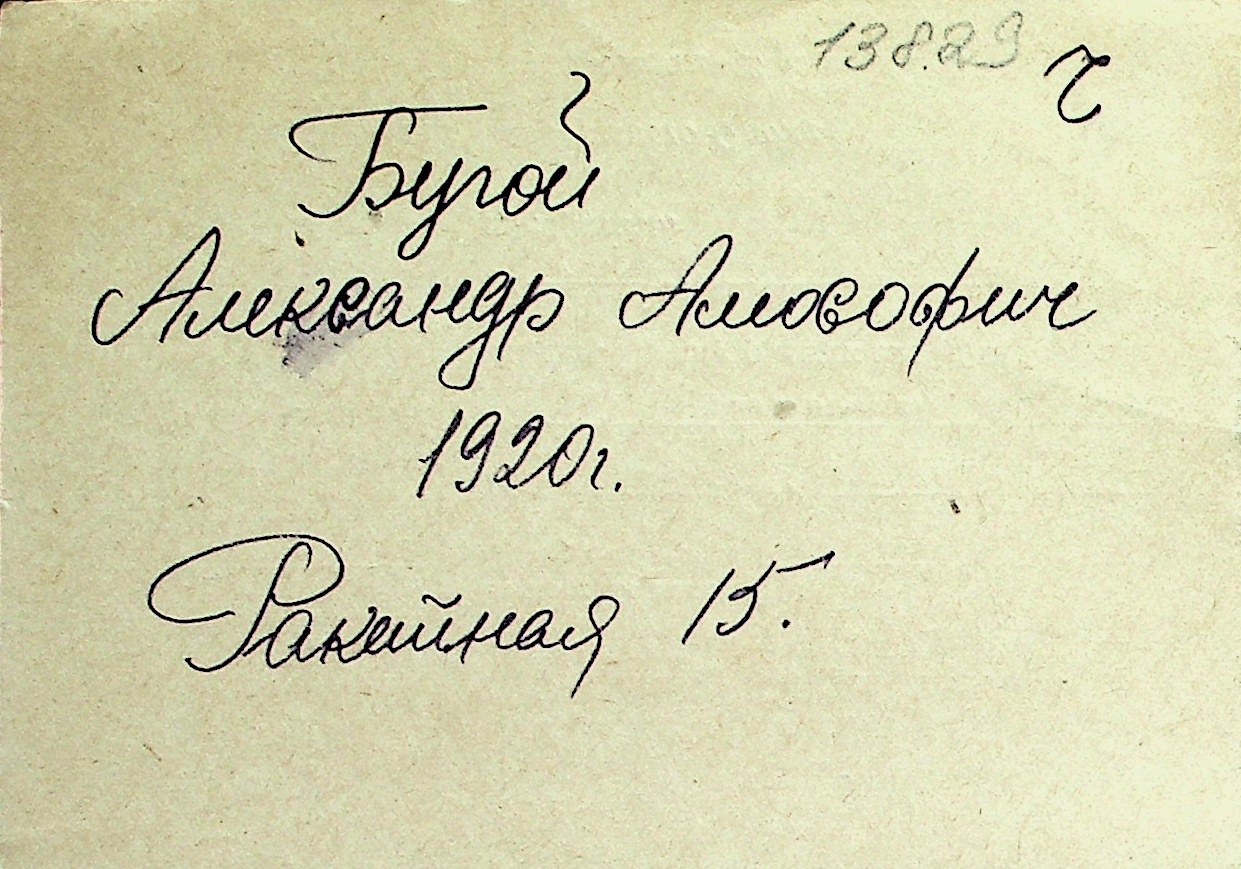 13829 ч
Бугой
Александр Амософич
1920г.
Ракитная 15.